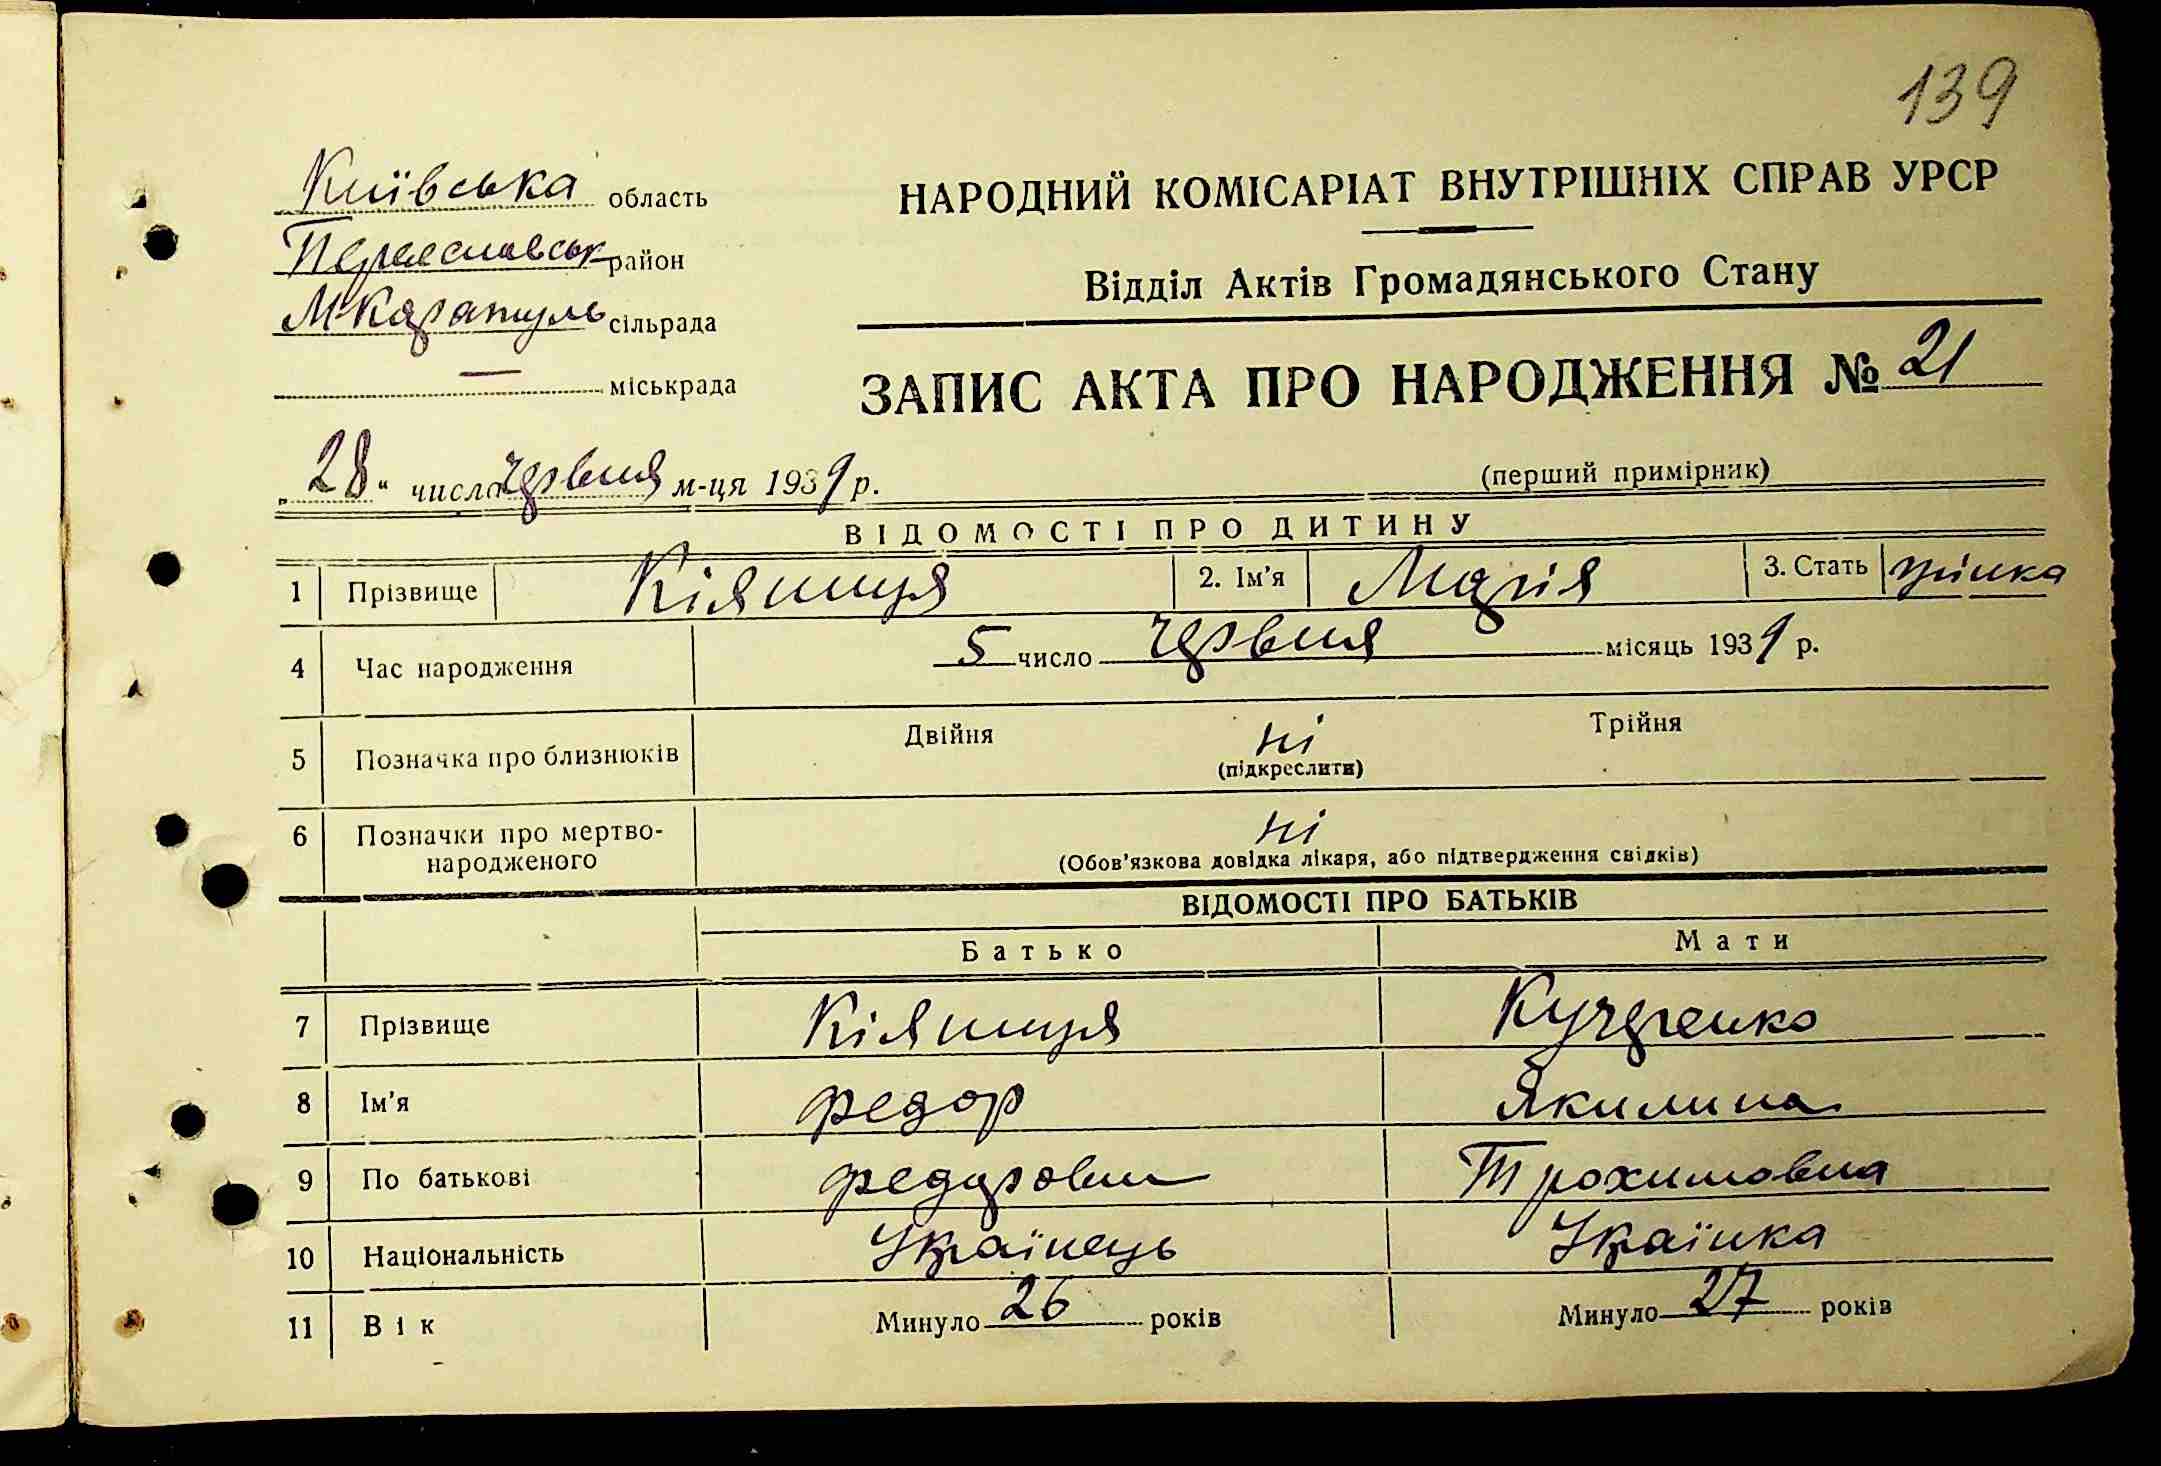 139
Київська область
Переяславськ район
М-Каратуль сільрада
— міськрада
НАРОДНИЙ КОМІСАРІАТ ВНУТРІШНІХ СПРАВ УРСР
Відділ Актів Громадянського Стану
ЗАПИС АКТА ПРО НАРОДЖЕННЯ № 21
„28“ числа червня м-ця 1939 р.
(перший примірник)
ВІДОМОСТІ ПРО ДИТИНУ
1 Прізвище Кіяниця 2. Ім'я Марія 3. Стать жінка
4 Час народження 5 число червня місяць 1939 р.
5 Позначка про близнюків Двійня ні Трійня
(підкреслити)
6 Позначки про мертво-
народженого ні
(Обов'язкова довідка лікаря, або підтвердження свідків)
ВІДОМОСТІ ПРО БАТЬКІВ
Батько Мати
7 Прізвище Кіяниця Кучеренко
8 Ім'я Федор Якилина
9 По батькові Федорович Трохимовна
10 Національність Українець Українка
11 Вік Минуло 26 років Минуло 27 років